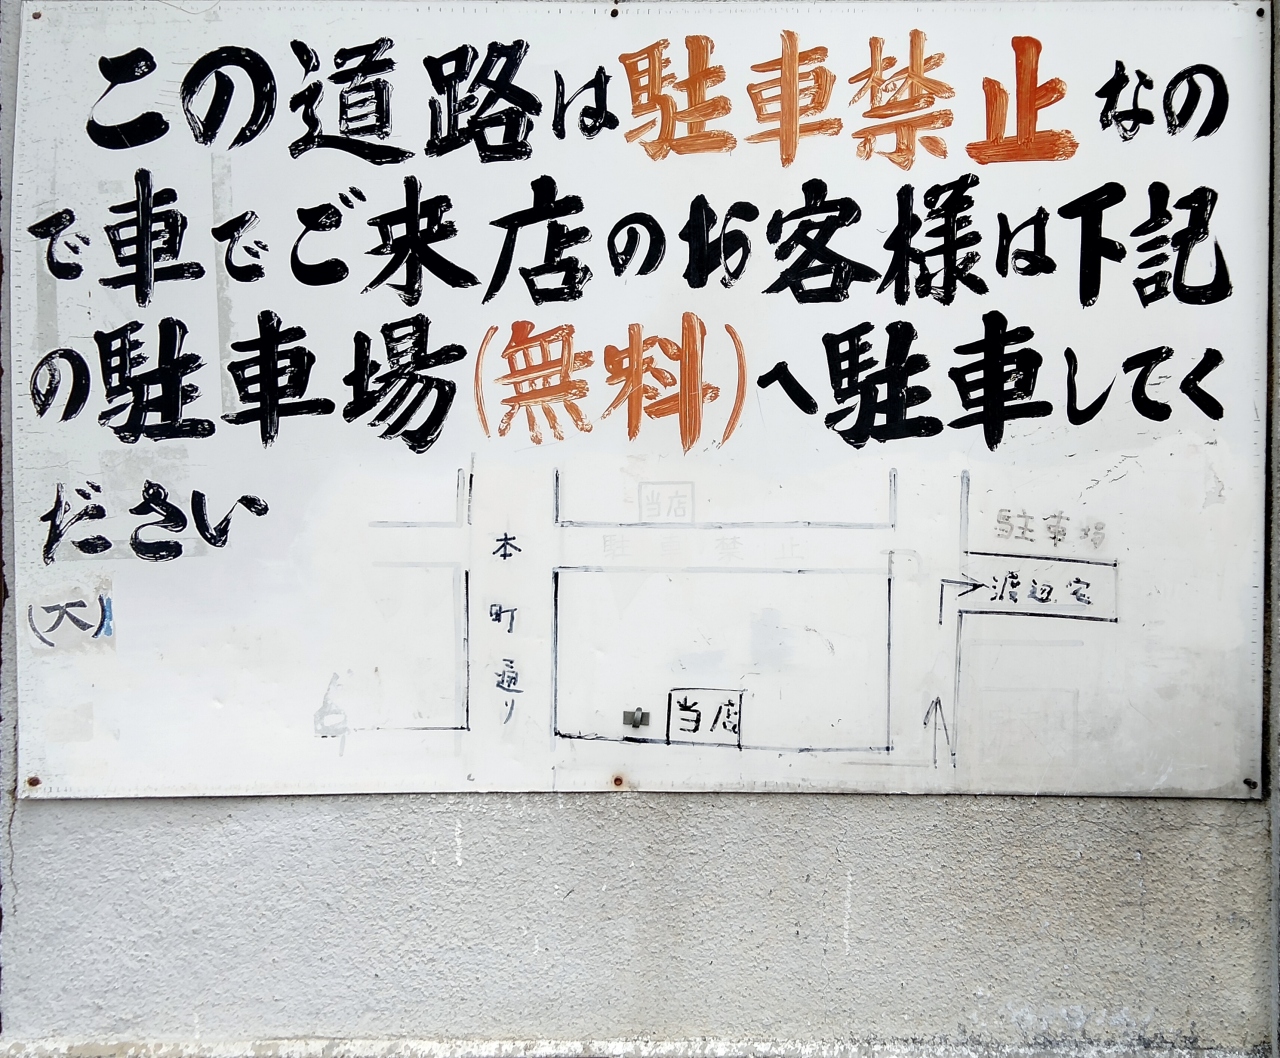 この道路は駐車禁止なの
で車でご来店のお客様は下記
の駐車場(無料)へ駐車してく
ださい
当店
駐車禁止
駐車場
本町通り
渡辺宅
(大)
当店